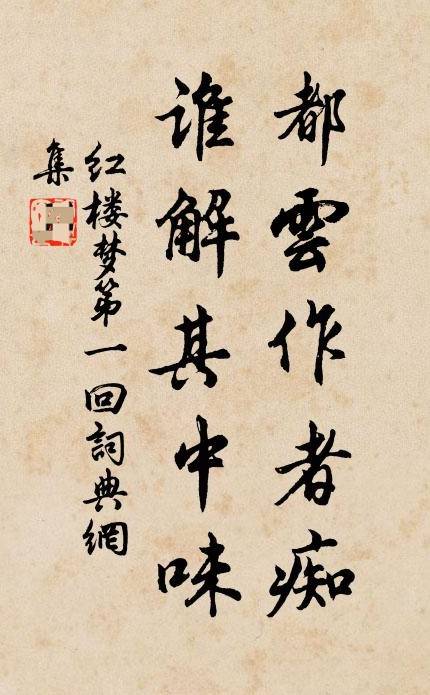 都雲作者痴
谁解其中味
红楼梦第一回詞典網
集